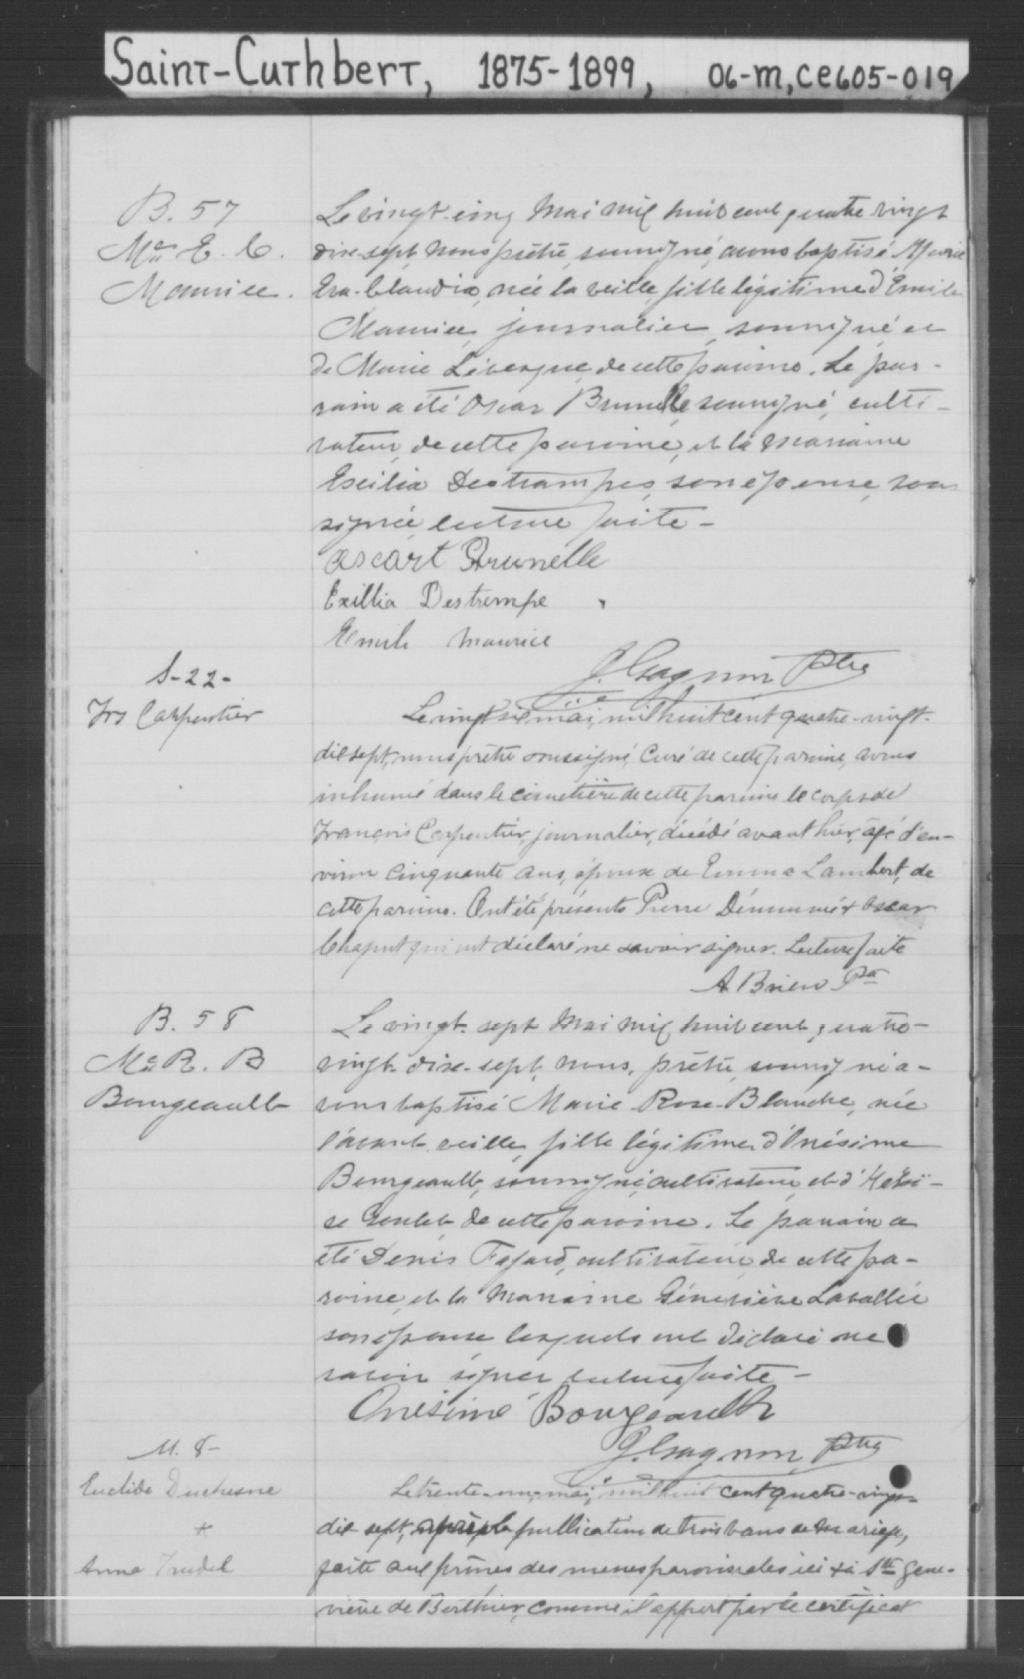 Saint-Cuthbert, 1875-1899, 06-M,CE605-019
B. 57
Mie E. C.
Maurice.
Le vingt cinq Mai mil huit cent quatre vingt
dix-sept, nous prêtre soussigné, avons baptisé Marie
Eva-Claudia, née la veille, fille légitime d'Emile
Maurice, journalier, soussigné et
de Marie Lévesque de cette paroisse. Le par-
rain a été Oscar Brunelle soussigné, culti-
vateur, de cette paroisse, et la marraine
Exilia Destrampes, son épouse, sous
signée, lecture faite -
Oscart Brunelle
Exillia Destrempe
Emile Maurice
J. Gagnon Ptre
S-22-
Frs Carpentier
Le vingt six mai, mil huit cent quatre-vingt-
dix sept, nous prêtre soussigné, Curé de cette paroisse, avons
inhumé dans le cimetière de cette paroisse le corps de
François Carpentier, journalier, décédé avant hier, âgé d'en-
viron cinquante ans, époux de Emma Lambert, de
cette paroisse. Ont été présents Pierre & Oscar
Chaput qui ont déclaré ne savoir signer. Lecture faite
A. Brien Ptre
B. 58
Mie R. B
Bourgeault
Le vingt-sept Mai mil huit cent quatre-
vingt-dix-sept, nous, prêtre, soussigné a-
vons baptisé Marie-Rose-Blanche, née
l'avant veille, fille légitime d'Onésime
Bourgeault, soussigné, cultivateur, et d'Heloï-
se Goulet de cette paroisse. Le parrain a
été Denis Fafard, cultivateur, de cette pa-
roisse, et la Marraine Géneviève Lavallée
son épouse lesquels ont déclaré ne
savoir signer lecture faite -
Onésime Bourgeault
J. Gagnon Ptre
M. 8-
Euclide Duchesne
+
Anna Trudel
Le trente-un mai, mil huit cent quatre-vingt-
dix sept, après la publication de trois bans de mariage,
faite aux prônes des messes paroissiales ici & à Ste Gene-
viève de Berthier, comme il appert par le certificat